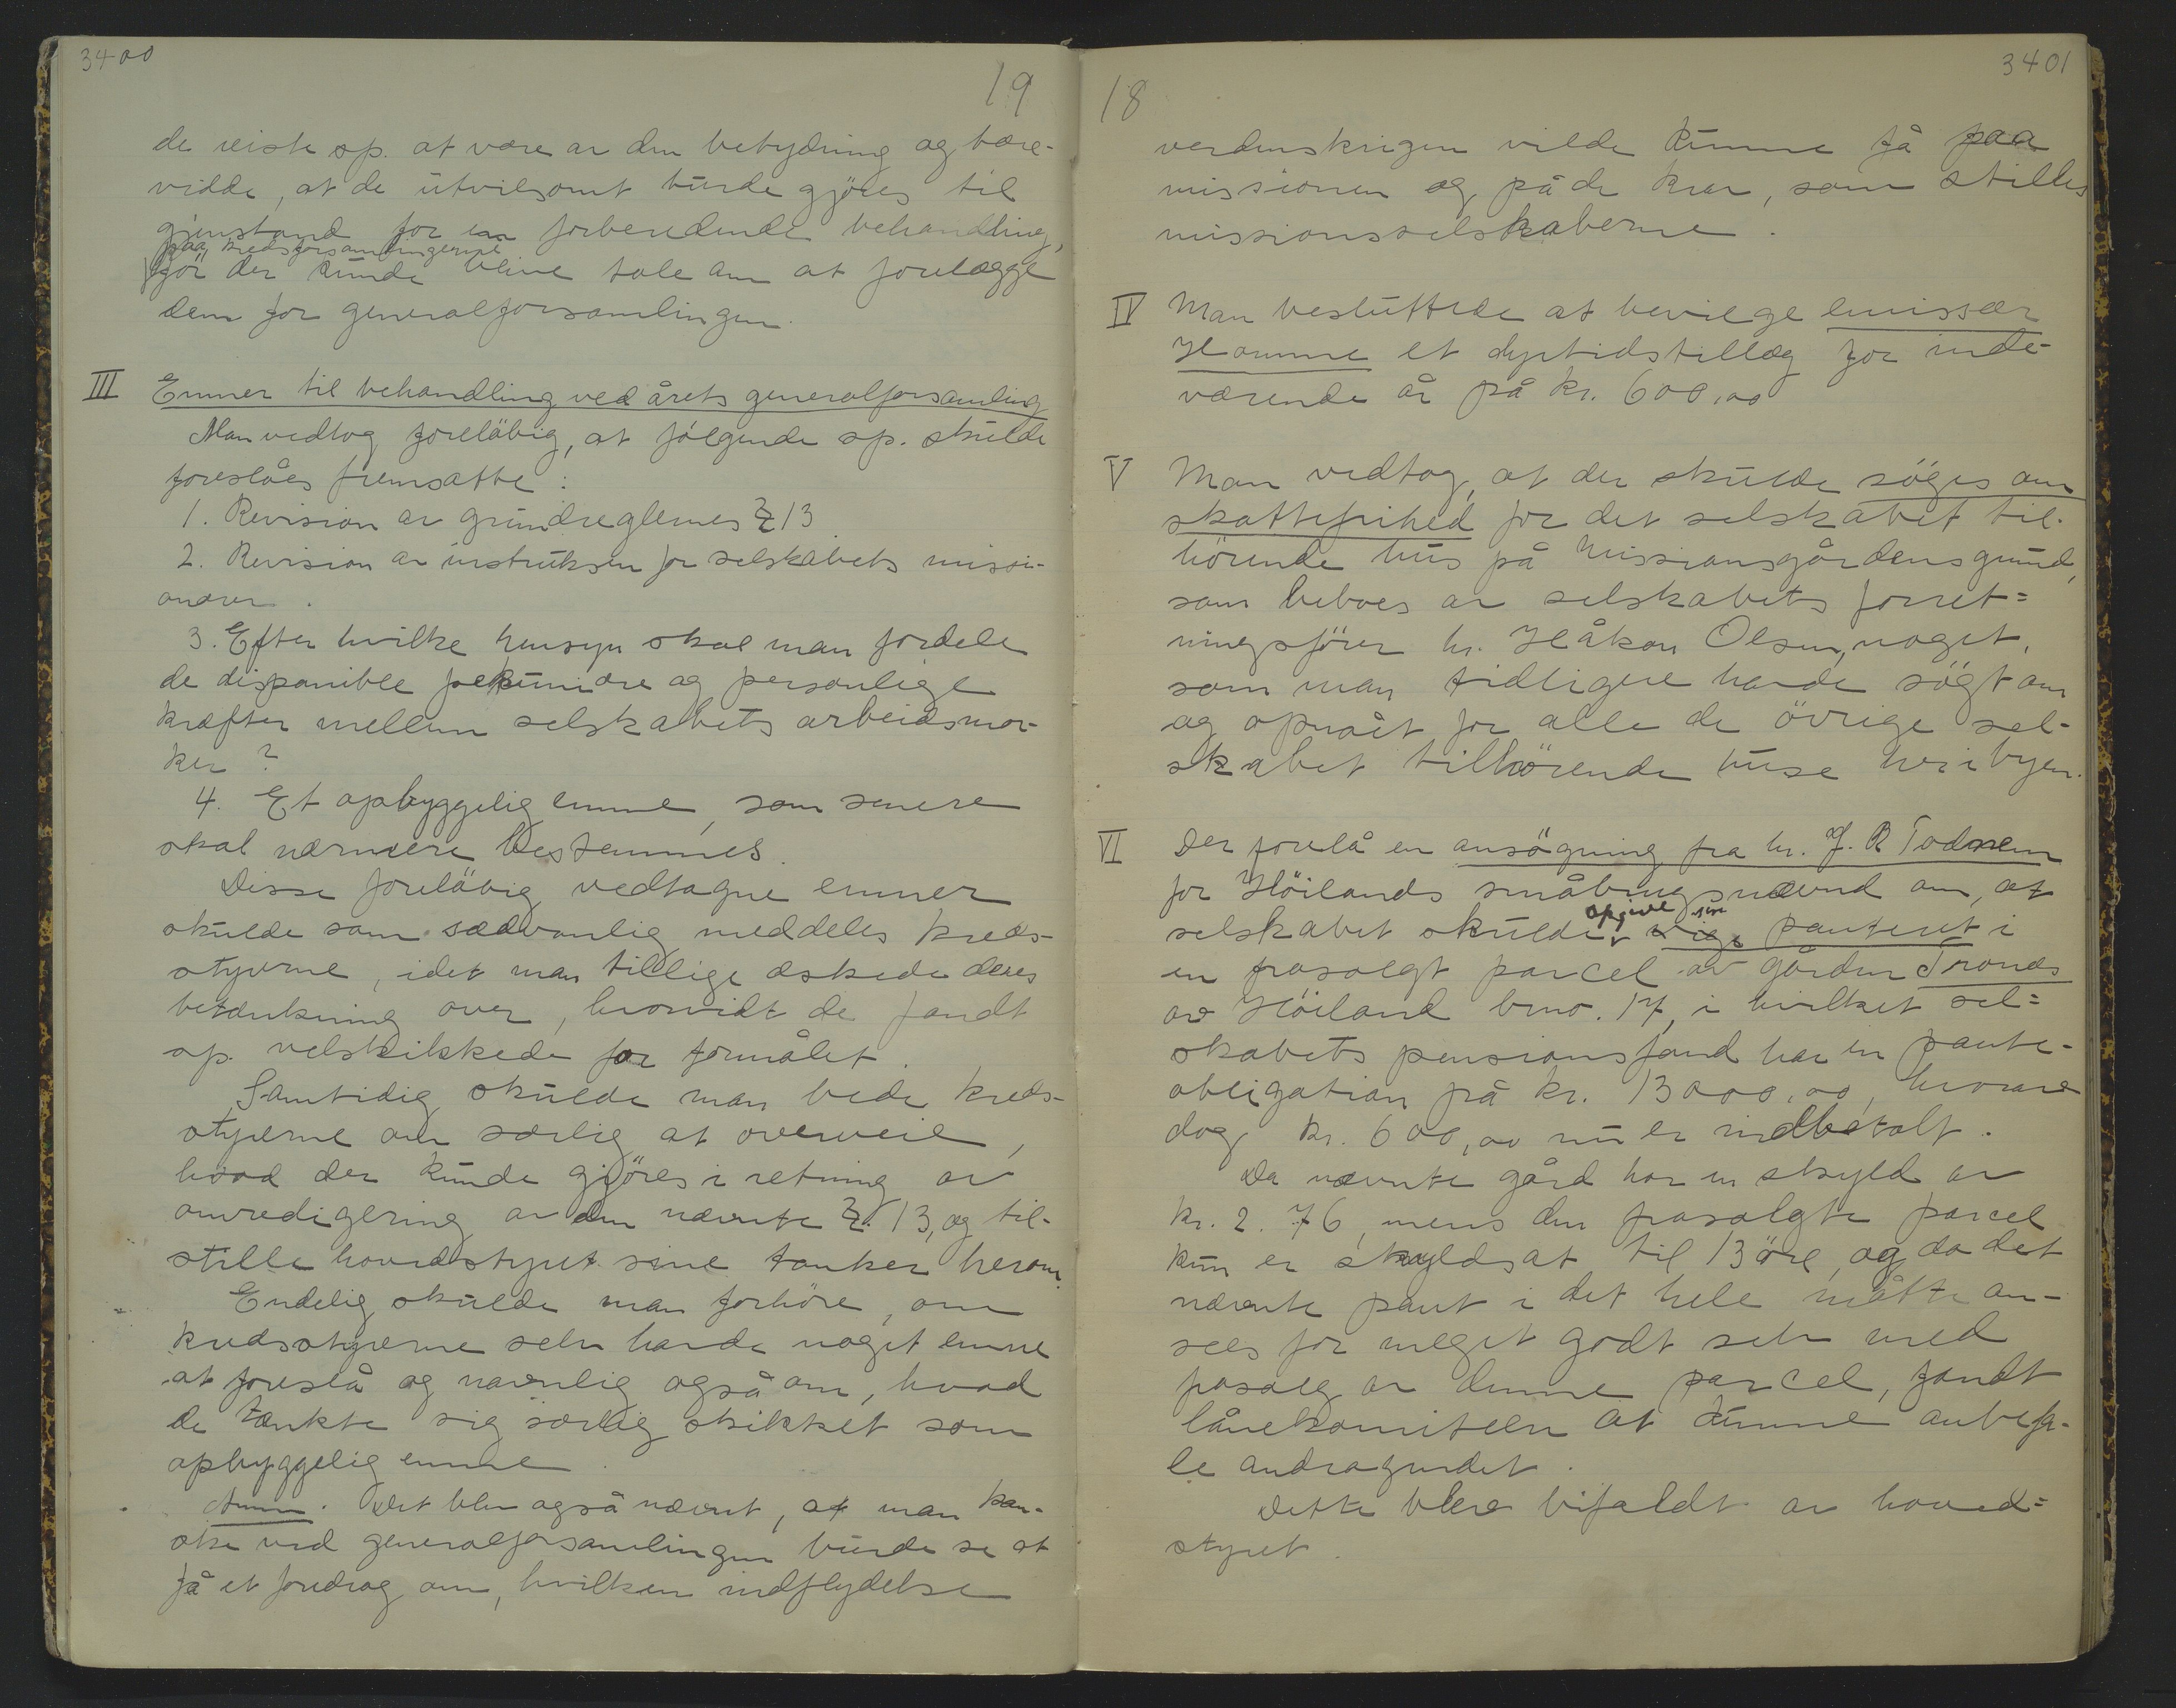 3400
19
de reiste sp. at være av den betydning og bære-
vidde, at de utvilsomt burde gjøres til
gjenstand for en forberedende behandling,
paa kredsforsamlingerne
før der kunde blive tale om at forelægge
dem for generalforsamlingen.
III Emner til behandling ved årets generalforsamling
Man vedtog foreløbig, at følgende sp. skulde
foreslåes fremsatte:
1. Revision av grundreglernes § 13
2. Revision av instruksen for selskabets missi-
onærer.
3. Efter hvilke hensyn skal man fordele
de disponible pekuniære og personlige
kræfter mellem selskabets arbeidsmar-
ker?
4. Et opbyggelig emne, som senere
skal nærmere bestemmes.
Disse foreløbig vedtagne emner
skulde som sædvanlig meddeles kreds-
styrerne, idet man tillige æskede deres
betænkning over, hvorvidt de fandt
sp. velskikkede for formålet.
Samtidig skulde man bede kreds-
styrerne om særlig at overveie,
hvad der kunde gjøres i retning av
omredigering av den nævnte §. 13, og til-
stille hovedstyret sine tanker herom.
Endelig skulde man forhøre, om
kredsstyrerne selv havde noget emne
at foreslå og navnlig også om, hvad
de tænkte sig særlig skikket som
opbyggelig emne.
Anm. Det blev også nævnt, at man kan-
ske ved generalforsamlingen burde se at
få et foredrag om, hvilken indflydelse
18
3401
verdenskrigen vilde kunne få paa
missionen og på de krav, som stilles
missionsselskaberne.
IV Man besluttede at bevilge emissær
Homme et dyrtidstillæg for inde-
værende år på kr. 600,00
V Man vedtog, at der skulde søges om
skattefrihed for det selskabet til-
hørende hus på Missionsgårdens grund,
som beboes av selskabets forret=
ningsfører hr. Håkon Olsen, noget,
som man tidligere havde søgt om
og opnåt for alle de øvrige sel-
skabet tilhørende huse her i byen.
VI Der forelå en ansøgning fra hr. J. R Todnem
for Høilands småbrugsnævnd om, at
opgive sin
selskabet skulde panteret i
en frasolgt parcel av gården Tronds
av Høiland bno. 17, i hvilket sel=
skabets pensionsfond har en pante-
obligation på kr. 13000,00, hvorav
dog kr. 600,00 nu er indbetalt.
Da nævnte gård har en skyld av
kr. 2.76, mens den frasolgte parcel
kun er skyldsat til 13 øre, og da det
nævnte pant i det hele måtte an-
sees for meget godt selv med
frasalg av denne parcel, fandt
lånekomiteen at kunne anbefa-
le andragendet.
Dette blev bifaldt av hoved=
styret.